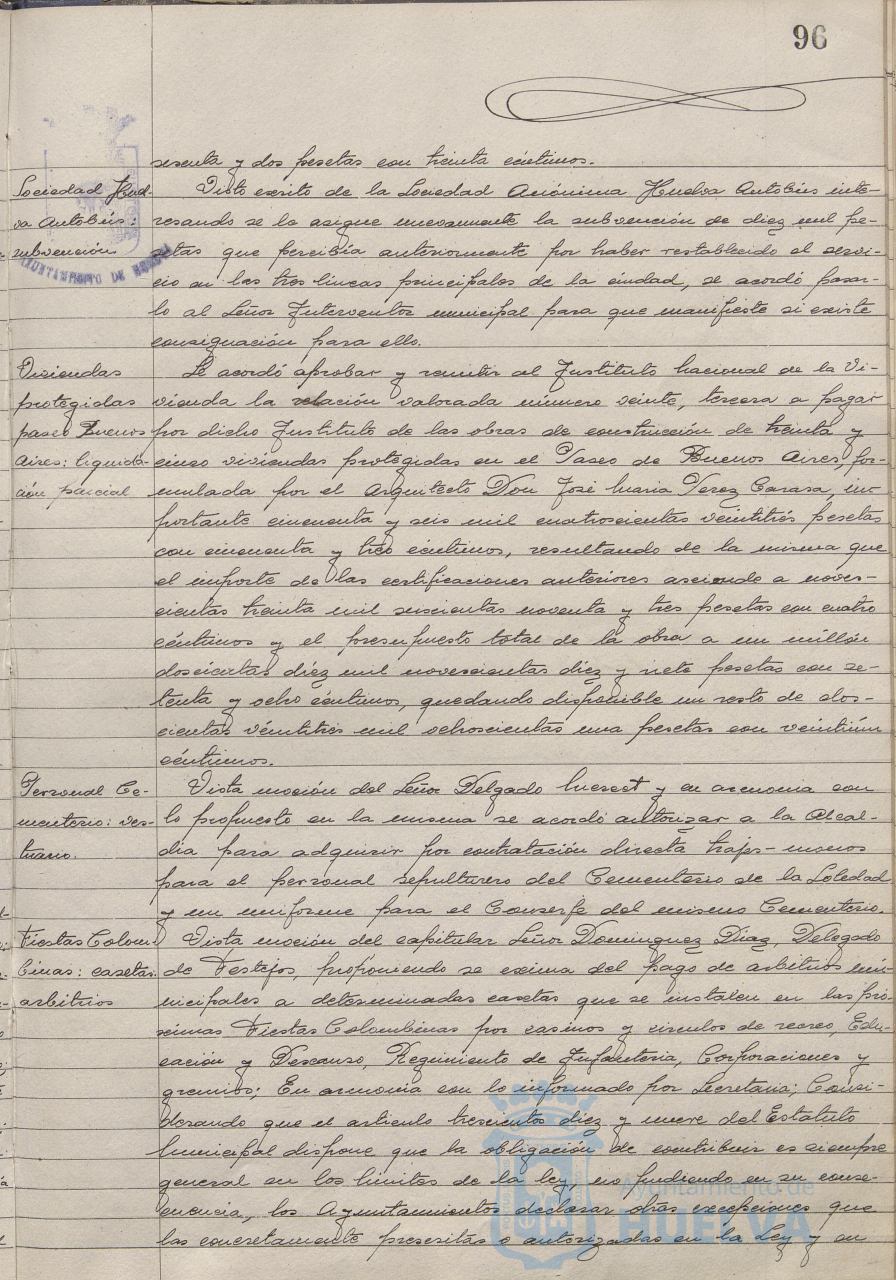 96
sesenta y dos pesetas con treinta céntimos.
Sociedad Huel-
va Autobús:
subvención
AYUNTAMIENTO DE HUELVA
Visto escrito de la Sociedad Anónima Huelva Autobús inte-
resando se le asigne nuevamente la subvención de diez mil pe-
setas que percibía anteriormente por haber restablecido el servi-
cio en las tres lineas principales de la ciudad, se acordó pasar-
lo al Señor Interventor municipal para que manifieste si existe
consignación para ello.
Viviendas
protegidas
paseo Buenos
Aires: liquida-
ción parcial
Se acordó aprobar y remitir al Instituto Nacional de la Vi-
vienda la relación valorada número veinte, tercera a pagar
por dicho Instituto de las obras de construcción de treinta y
cinco viviendas protegidas en el Paseo de Buenos Aires, for-
mulada por el Arquitecto Don José Maria Perez Carasa, im-
portante cincuenta y seis mil cuatroscientas veintitrés pesetas
con cincuenta y tres céntimos, resultando de la misma que
el importe de las certificaciones anteriores asciende a noves-
cientas treinta mil seiscientas noventa y tres pesetas con cuatro
céntimos y el presupuesto total de la obra a un millón
doscientas diez mil novescientas diez y siete pesetas con se-
tenta y ocho céntimos, quedando disponible un resto de dos-
cientas veintitres mil ochoscientas una pesetas con veintiún
céntimos.
Personal Ce-
menterio: ves-
tuario.
Vista moción del Señor Delgado y en armonia con
lo propuesto en la misma se acordó autorizar a la Alcal-
dia para adquirir por contratación directa trajes-monos
para el personal sepulturero del Cementerio de la Soledad
y un uniforme para el Conserje del mismo Cementerio.
Fiestas Colom-
binas: casetas:
arbitrios
Vista moción del capitular Señor Dominguez Diaz, Delegado
de Festejos, proponiendo se exima del pago de arbitrios mu-
nicipales a determinadas casetas que se instalen en las pró-
ximas Fiestas Colombinas por casinos y circulos de recreo, Edu-
cación y Descanso, Regimiento de Infanteria, Corporaciones y
gremios; En armonia con lo informado por Secretaria; Consi-
derando que el articulo trescientos diez y nueve del Estatuto
Municipal dispone que la obligación de contribuir es siempre
general en los limites de la ley, no pudiendo en su conse-
cuencia, los Ayuntamientos declarar otras excepciones que
las concretamente prescritas o autorizadas en la Ley y en
Ayuntamiento de
HUELVA